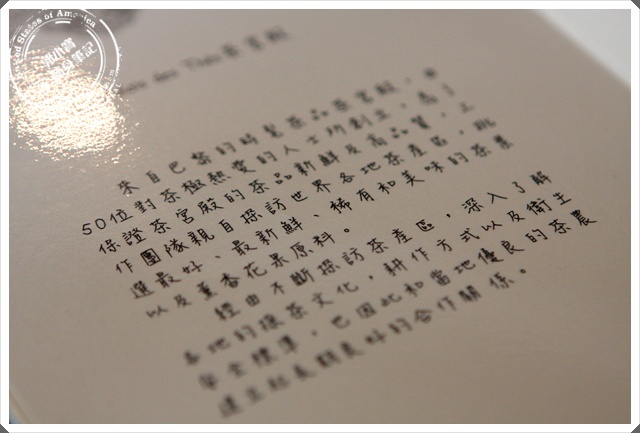 United States of America
des Thés 茶宮殿
來自巴黎的時髦茶品茶宮殿，由
50位對茶極熱愛的人士所創立，為了
保證茶宮殿的茶品新鮮及高品質，工
作團隊親自探訪世界各地茶產區，挑
選最好、最新鮮、稀有和美味的茶葉
以及薰香花果原料。
經由不斷探訪茶產區，深入了解
各地的採茶文化，耕作方式以及衛生
安全標準，也因此和當地優良的茶農
建立起長期良好的合作關係。